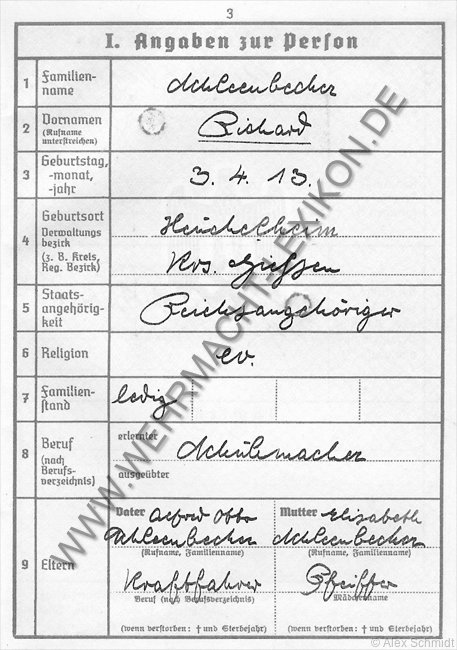 3
I. Angaben zur Person
1 Familien-
name
Schleenbecker
2 Vornamen
(Rufname
unterstreichen)
Richard
3 Geburtstag,
-monat,
-jahr
3. 4. 13.
4 Geburtsort
Verwaltungs-
bezirk
(z. B. Kreis,
Reg. Bezirk)
Heuchelheim
Krs. Giessen
5 Staats-
angehörig-
keit
Reichsangehöriger
6 Religion
ev.
7 Familien-
stand
ledig
8 Beruf
(nach
Berufs-
verzeichnis)
erlernter
Schuhmacher
ausgeübter
9 Eltern
Vater Alfred Otto
Schleenbecker
(Rufname, Familienname)
Kraftfahrer
Beruf (nach Berufsverzeichnis)
(wenn verstorben: † und Sterbejahr)
Mutter Elisabeth
Schleenbecker
(Rufname, Familienname)
Pfeiffer
Mädchenname
(wenn verstorben: † und Sterbejahr)
WWW.WEHRMACHT-LEXIKON.DE
© Alex Schmidt